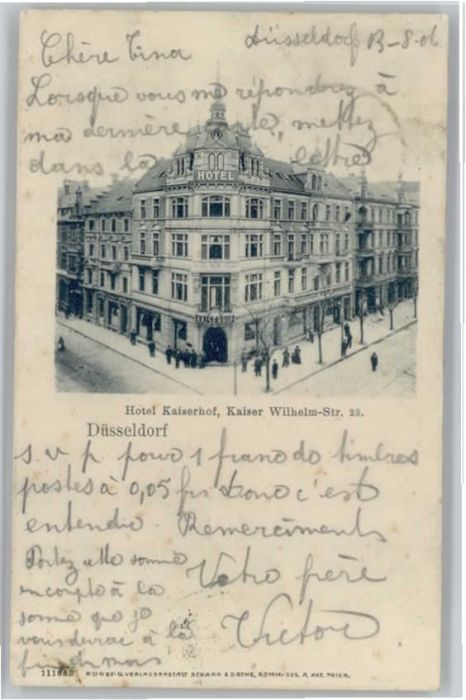 Chère Tina
Düsseldorf 13-8-06
Lorsque vous me répondrez à
ma dernière mettez
dans la lettre
HOTEL
KAISERHOF
Hotel Kaiserhof, Kaiser Wilhelm-Str. 23.
Düsseldorf
s. v p pour 1 franc de timbres
postes à 0,05 frs Donc c'est
entendu. Remerciments
Portez cette somme
en compte à la
somme que je
vous devrai à la
fin du mois
Votre frère
Victor